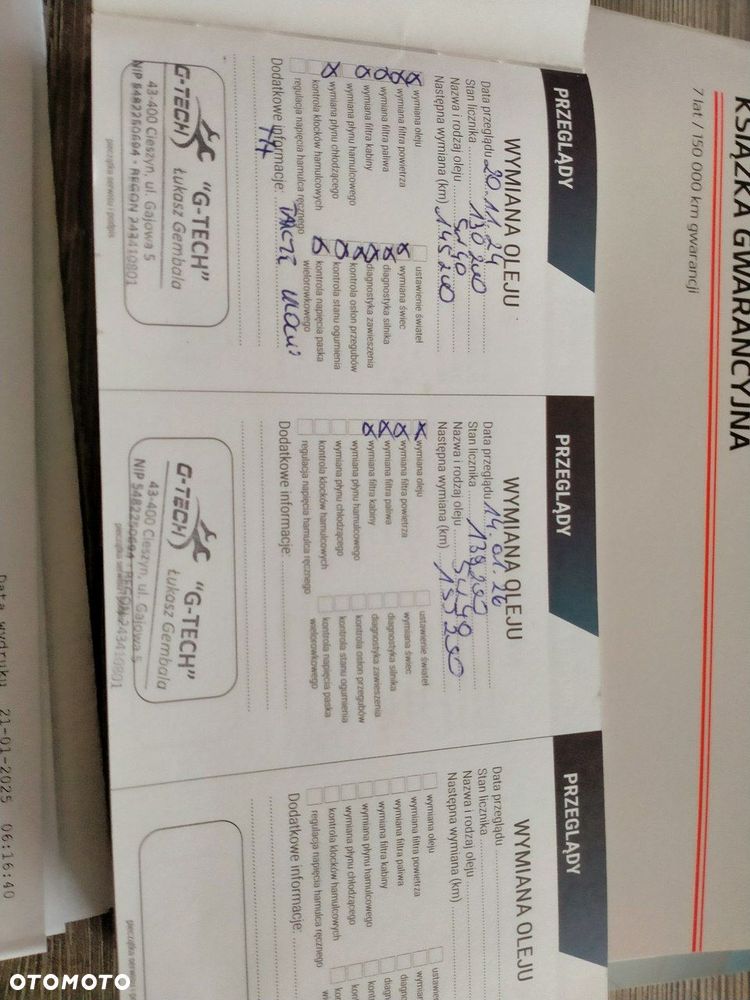 KSIĄŻKA GWARANCYJNA
7 lat / 150 000 km gwarancji
PRZEGLĄDY
WYMIANA OLEJU
Data przeglądu 20.11.24
Stan licznika 130200
Nazwa i rodzaj oleju 5W40
Następna wymiana (km) 145200
x wymiana oleju
x wymiana filtra powietrza
x wymiana filtra paliwa
x wymiana filtra kabiny
wymiana płynu hamulcowego
x wymiana płynu chłodzącego
kontrola klocków hamulcowych
regulacja napięcia hamulca ręcznego
ustawienie świateł
x wymiana świec
x diagnostyka silnika
x diagnostyka zawieszenia
x kontrola osłon przegubów
x kontrola stanu ogumienia
x kontrola napięcia paska
wielorowkowego
Dodatkowe informacje:
G-TECH
"G-TECH"
Łukasz Gembala
43-400 Cieszyn, ul. Gajowa 5
NIP 5482250694 · REGON 243410801
pieczątka serwisu i podpis
PRZEGLĄDY
WYMIANA OLEJU
Data przeglądu 14.01.26
Stan licznika
Nazwa i rodzaj oleju
Następna wymiana (km)
x wymiana oleju
x wymiana filtra powietrza
x wymiana filtra paliwa
x wymiana filtra kabiny
wymiana płynu hamulcowego
wymiana płynu chłodzącego
kontrola klocków hamulcowych
regulacja napięcia hamulca ręcznego
ustawienie świateł
wymiana świec
diagnostyka silnika
diagnostyka zawieszenia
kontrola osłon przegubów
kontrola stanu ogumienia
kontrola napięcia paska
wielorowkowego
Dodatkowe informacje:
G-TECH
"G-TECH"
Łukasz Gembala
43-400 Cieszyn, ul. Gajowa 5
NIP 5482250694 · REGON 243410801
pieczątka serwisu
PRZEGLĄDY
WYMIANA OLEJU
Data przeglądu
Stan licznika
Nazwa i rodzaj oleju
Następna wymiana (km)
wymiana oleju
wymiana filtra powietrza
wymiana filtra paliwa
wymiana filtra kabiny
wymiana płynu hamulcowego
wymiana płynu chłodzącego
kontrola klocków hamulcowych
regulacja napięcia hamulca ręcznego
Dodatkowe informacje:
Data wydruku 21-01-2025 06:16:40
OTOMOTO